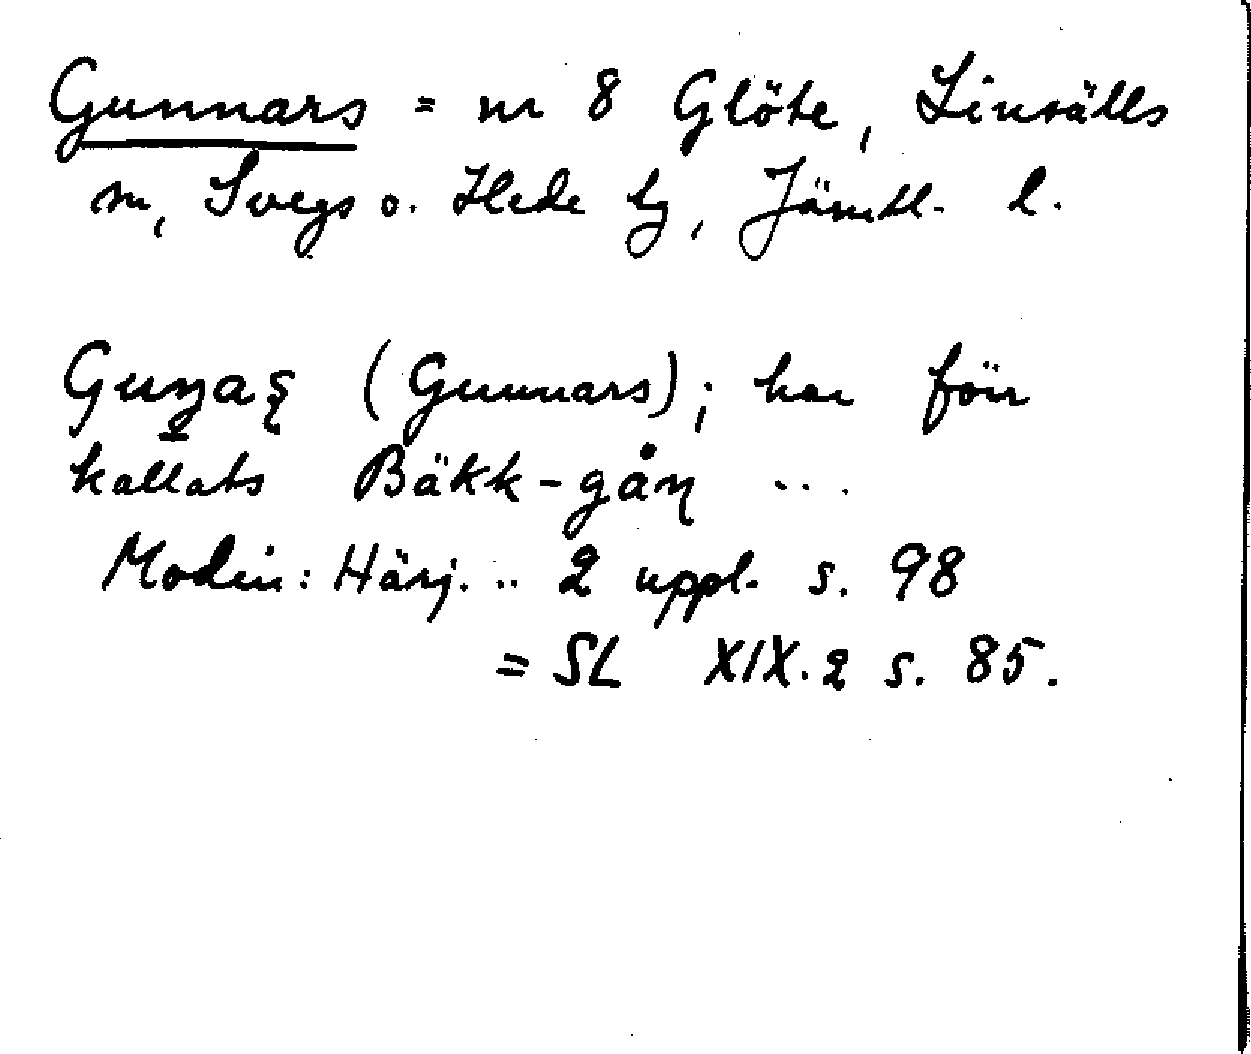 Gunnars = nr 8 Glöte, Linsälls
sn, Svegs o. Hede tg, Jämtl. l.
Guṉaș (Gunnars); har förr
kallats Bäkk-gåɳ ...
Modin: Härj. .. 2 uppl. s. 98
= SL XIX.2 s. 85.